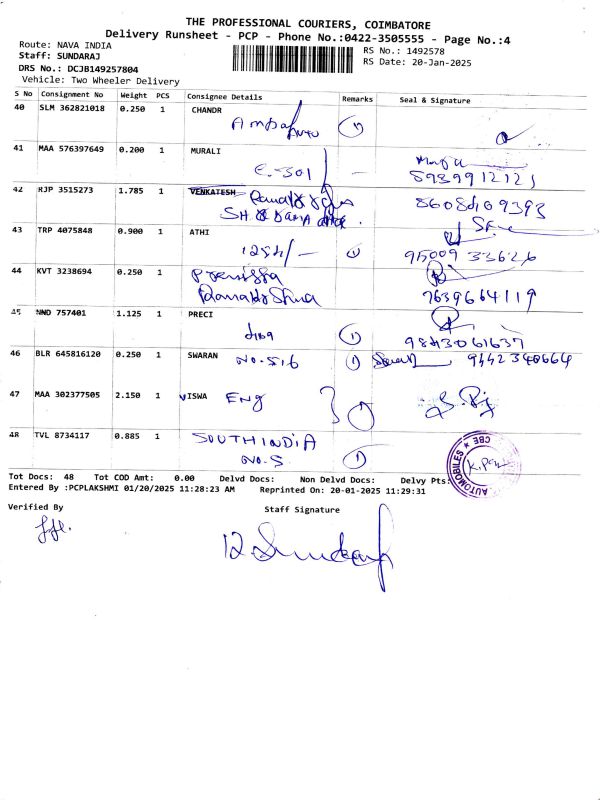 THE PROFESSIONAL COURIERS, COIMBATORE
Delivery Runsheet - PCP - Phone No.:0422-3505555 - Page No.:4
Route: NAVA INDIA RS No.: 1492578
Staff: SUNDARAJ RS Date: 20-Jan-2025
DRS No.: DCJB149257804
Vehicle: Two Wheeler Delivery
S No Consignment No Weight PCS Consignee Details Remarks Seal & Signature
40 SLM 362821018 0.250 1 CHANDR
1
41 MAA 576397649 0.200 1 MURALI
E-301 8939912121
42 RJP 3515273 1.785 1 VENKATESH
8608409393
43 TRP 4075848 0.900 1 ATHI
1254/- 1 9500933626
44 KVT 3238694 0.250 1
7639664119
45 NND 757401 1.125 1 PRECI
1 9843061637
46 BLR 645816120 0.250 1 SWARAN
NO.516 1 9442340664
47 MAA 302377505 2.150 1 VISWA ENG
1
48 TVL 8734117 0.885 1 SOUTH INDIA
NO.5. 1
AUTOMOBILES ★ CBE ★
Tot Docs: 48 Tot COD Amt: 0.00 Delvd Docs: Non Delvd Docs: Delvy Pts:
Entered By :PCPLAKSHMI 01/20/2025 11:28:23 AM Reprinted On: 20-01-2025 11:29:31
Verified By Staff Signature